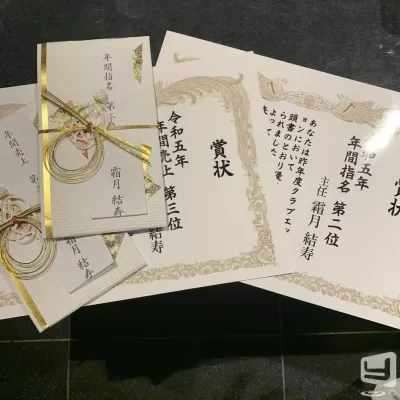 年間指名
霜月 結寿
年間売上
霜月 結寿
賞状
令和五年
年間売上 第三位
結寿
賞状
和五年
年間指名 第二位
主任 霜月 結寿
あなたは昨年度クラブエッ
ョンにおいて
頭書のとおり優
られました
よって